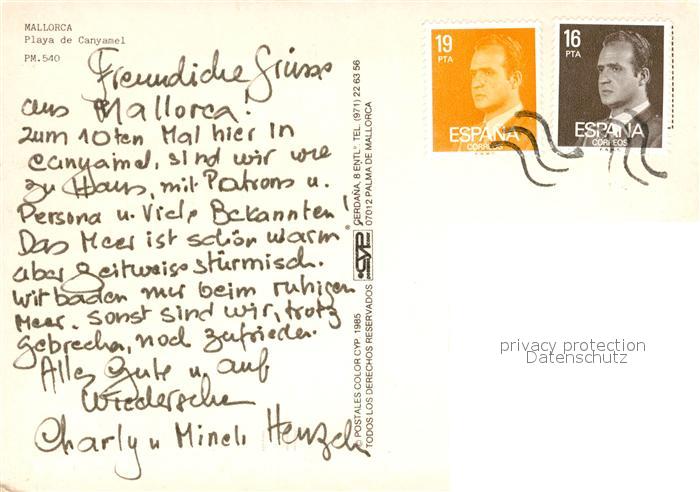 MALLORCA
Playa de Canyamel
PM.540
Freundliche Grüsse
aus Mallorca!
zum 10ten Mal hier in
Canyamel, sind wir wie
zu Haus, mit Patrons u.
Persona u. viele Bekannten!
Das Meer ist schön warm
aber zeitweise stürmisch.
wir baden nur beim ruhigen
Meer. Sonst sind wir, trotz
gebrechen, noch zufrieden.
Alles Gute u. auf
Wiedersehen
Charly u Mineli
© POSTALES COLOR CYP. 1985
TODOS LOS DERECHOS RESERVADOS
CYP
®
CERDAÑA, 8 ENTL.º TEL. (971) 22 63 56
07012 PALMA DE MALLORCA
19
PTA
ESPAÑA
CORREOS
16
PTA
ESPAÑA
CORREOS
privacy protection
Datenschutz